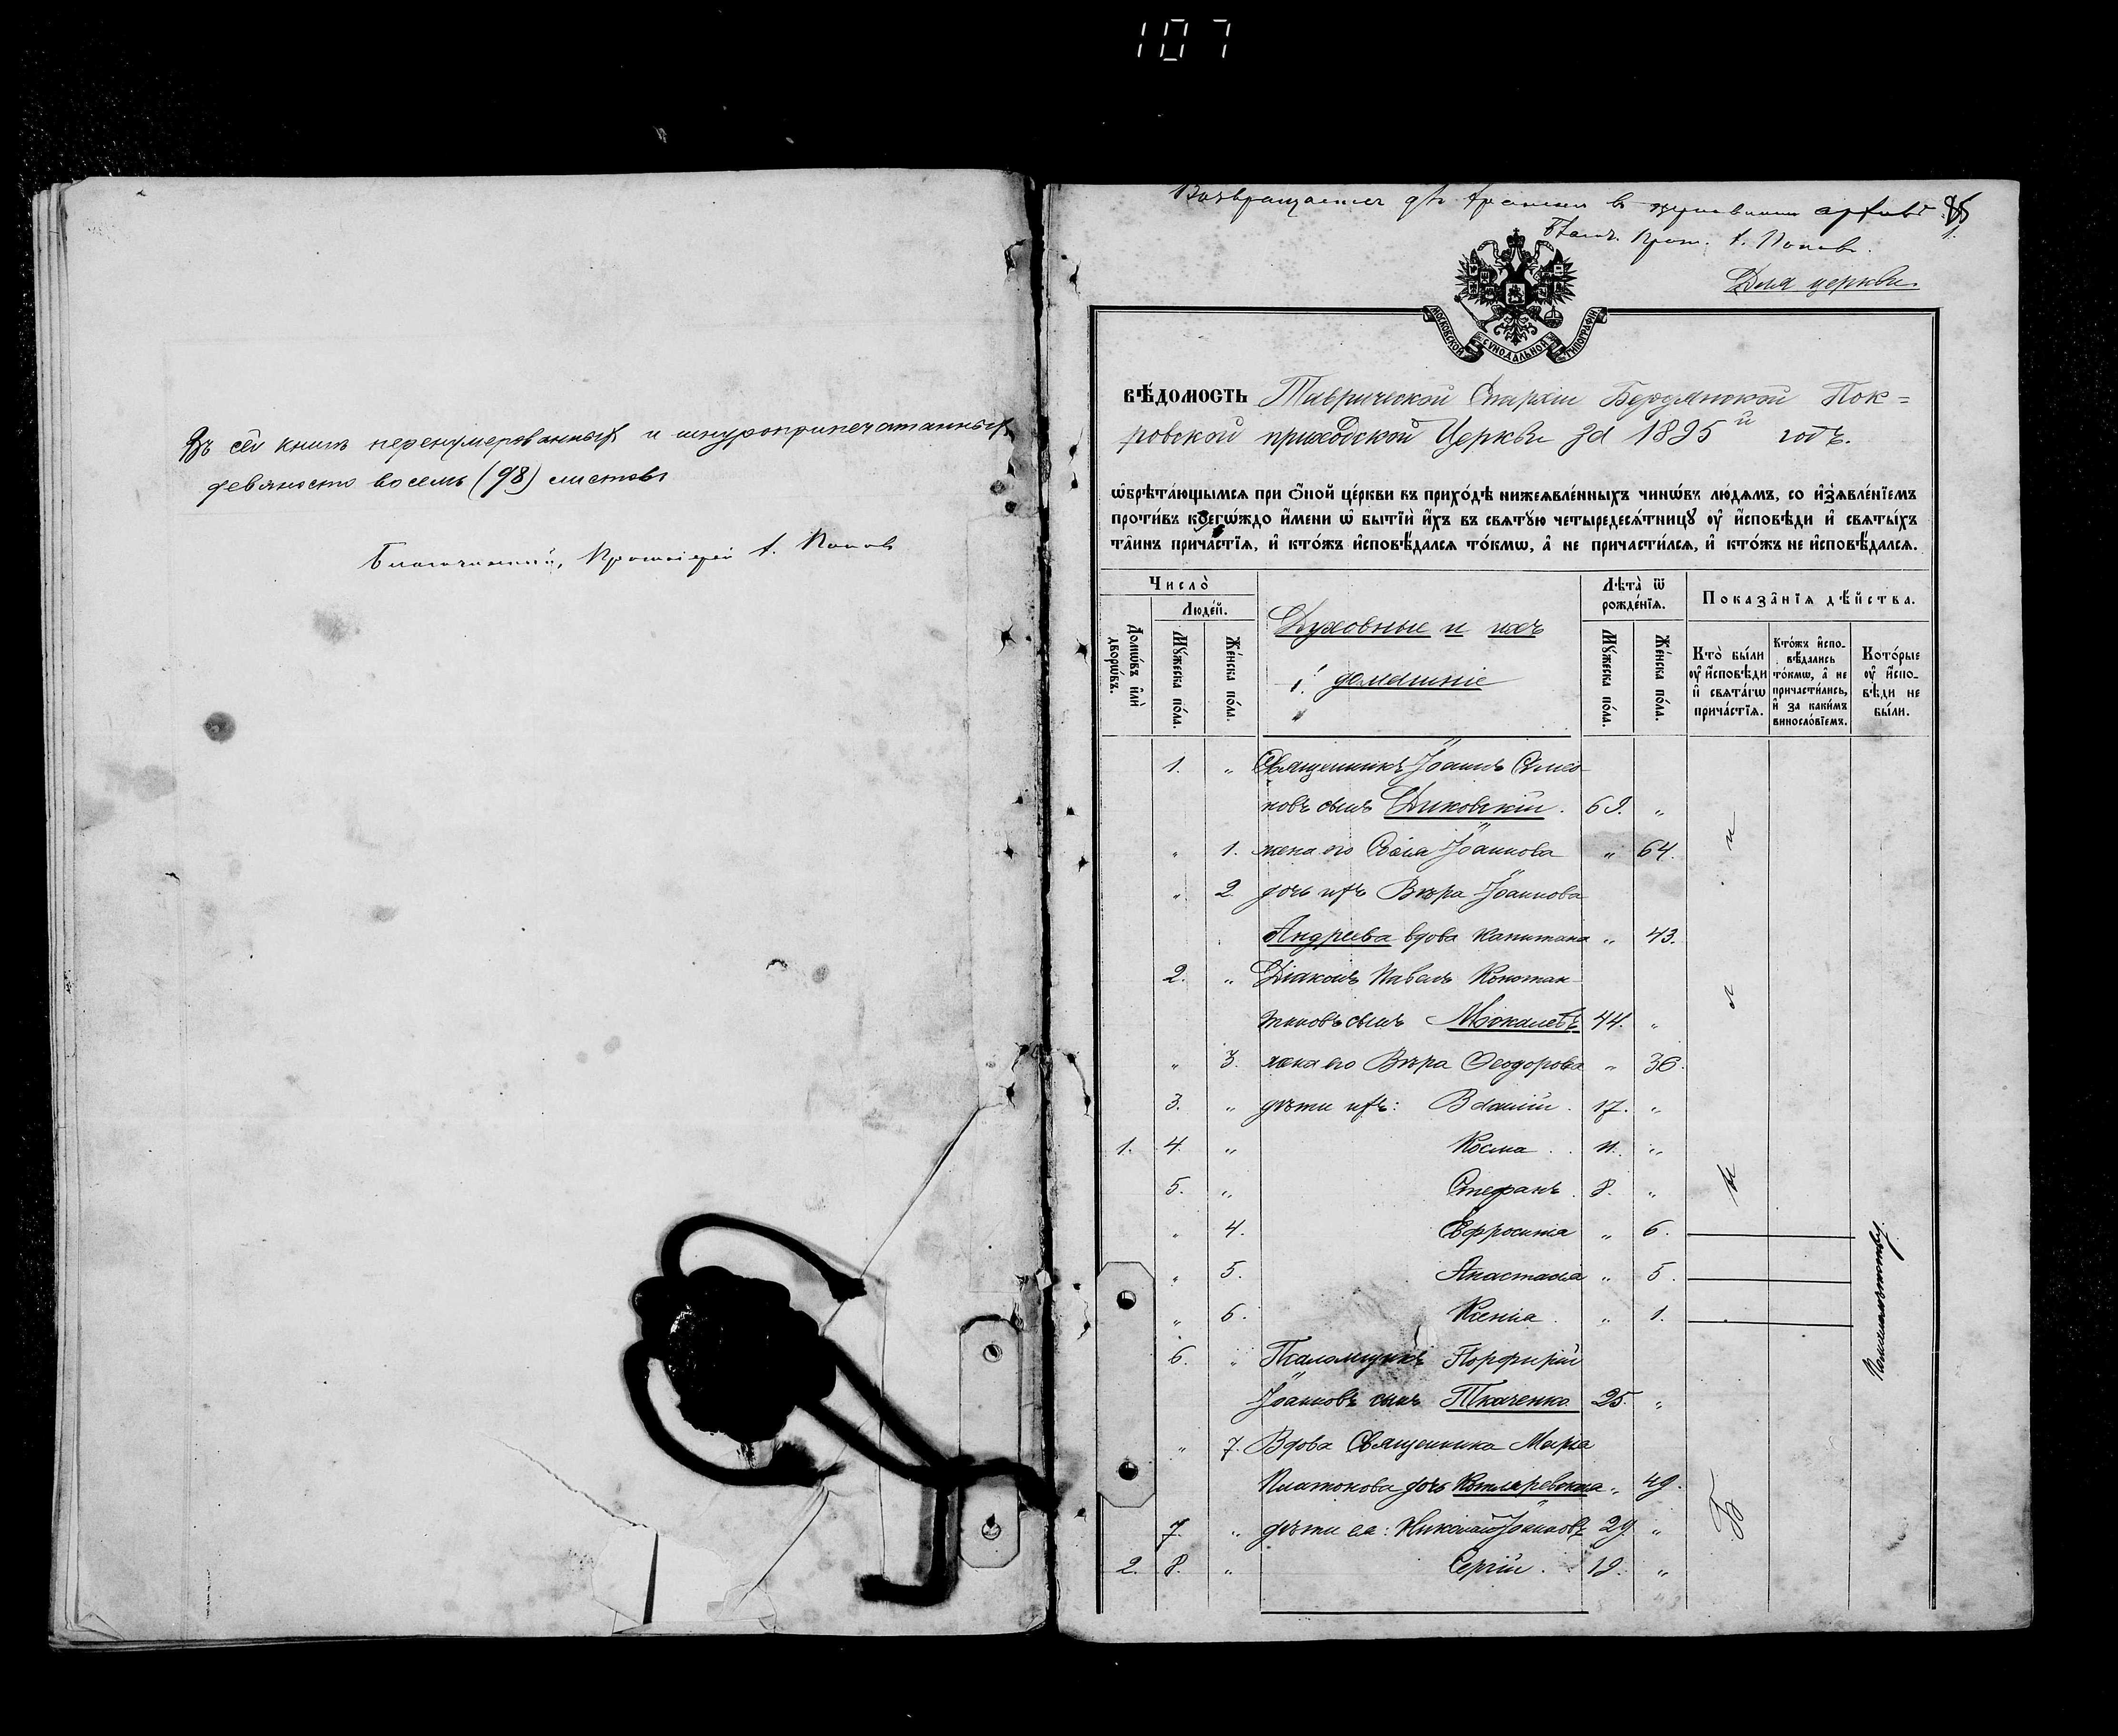 107
Въ сей книгѣ перенумерованныхъ и шнуроприпечатанныхъ
девяносто восемь (98) листовъ
Благочинный, Протоіерей А. Поповъ
Возвращается для храненія въ церковномъ архивѣ
Благ. Прот. А. Поповъ.
Для церкви
МОСКОВСКОЙ СѴНОДАЛЬНОЙ ТИПОГРАФІИ
ВѢ́ДОМОСТЬ Таврической Епархіи Бердянской Пок=
ровской приходской Церкви за 1895й годъ.
ѡ҆брѣта́ющымся при ѻ҆́ной це́ркви въ прихо́дѣ нижеявле́нныхъ чинѡ́въ лю́дямъ, со и҆з̾явле́нїемъ
проти́въ коегѡ́ждо и҆́мени ѡ҆ бытїѝ и҆́хъ въ святу́ю четыредеся́тницу ѹ҆ и҆́сповѣди и҆ святы́хъ
та̑инъ прича́стїя, и҆ кто́жъ и҆сповѣ́дался то́кмѡ, а҆ не причасти́лся, и҆ кто́жъ не и҆сповѣ́дался.
Число̀
Люде́й.
Домѡ́въ и҆лѝ дворѡ́въ.
Му́жеска по́ла.
Же́нска по́ла.
Духовные и ихъ
домашніе
Лѣта̀ ѿ рожде́нїя.
Му́жеска по́ла.
Же́нска по́ла.
Показа̑нїя дѣ́йства.
Кто̀ бы́ли ѹ҆ и҆́сповѣди и҆ свята́гѡ прича́стїя.
Кто́жъ и҆спо-вѣ́дались то́кмѡ, а҆ не причасти́лись, и҆ за каки́мъ винословїемъ.
Кото́рые ѹ҆ и҆́спо-вѣди не бы́ли.
1. „ Священникъ Іоаннъ Симео-
новъ сынъ Диковскій. 69. „
„ 1. жена его Іоаннова „ 64.
„ 2 дочь ихъ Вѣра Іоаннова
Андреева вдова капитана „ 43.
2. „ Діаконъ Павелъ Констан-
тиновъ сынъ 44. „
„ 3. жена его Вѣра Ѳеодорова „ 36.
3. „ дѣти ихъ: 17. „
1. 4. „ Косма . . 11. „
5. „ Стефанъ . 8. „
„ 4. Евфросинія „ 6.
„ 5. Анастасія „ 5.
„ 6. Ксенія . „ 1.
6. „ Псаломщикъ Порфирій
Іоанновъ сынъ Ткаченко 25. „
„ 7. Вдова Священника Марія
Платонова дочь Котляревская „ 49.
7. „ дѣти ея: Николай Іоанновъ 29 „
2. 8. „ Сергій . 19. „
Б ы л и
По малолѣтству